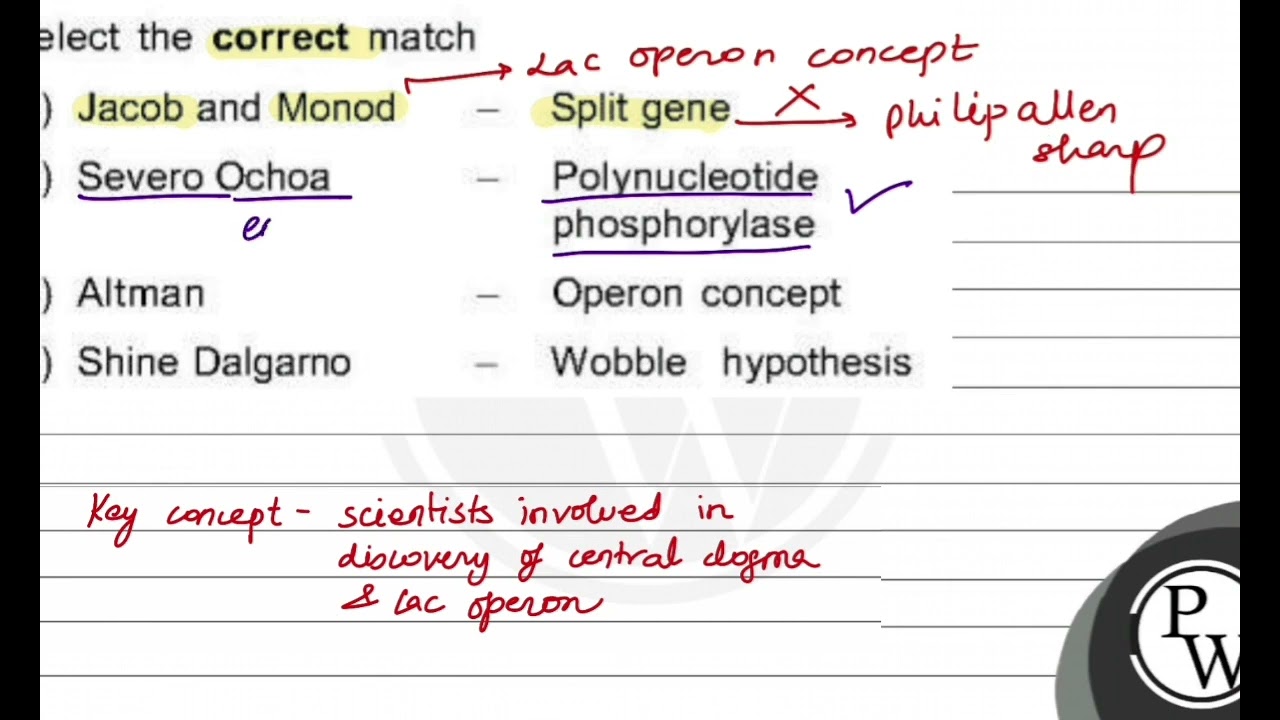 elect the correct match
Lac operon concept
) Jacob and Monod – Split gene
Philip allen
sharp
) Severo Ochoa – Polynucleotide
phosphorylase
e
) Altman – Operon concept
) Shine Dalgarno – Wobble hypothesis
Key concept - scientists involved in
discovery of central dogma
& Lac operon
P
W